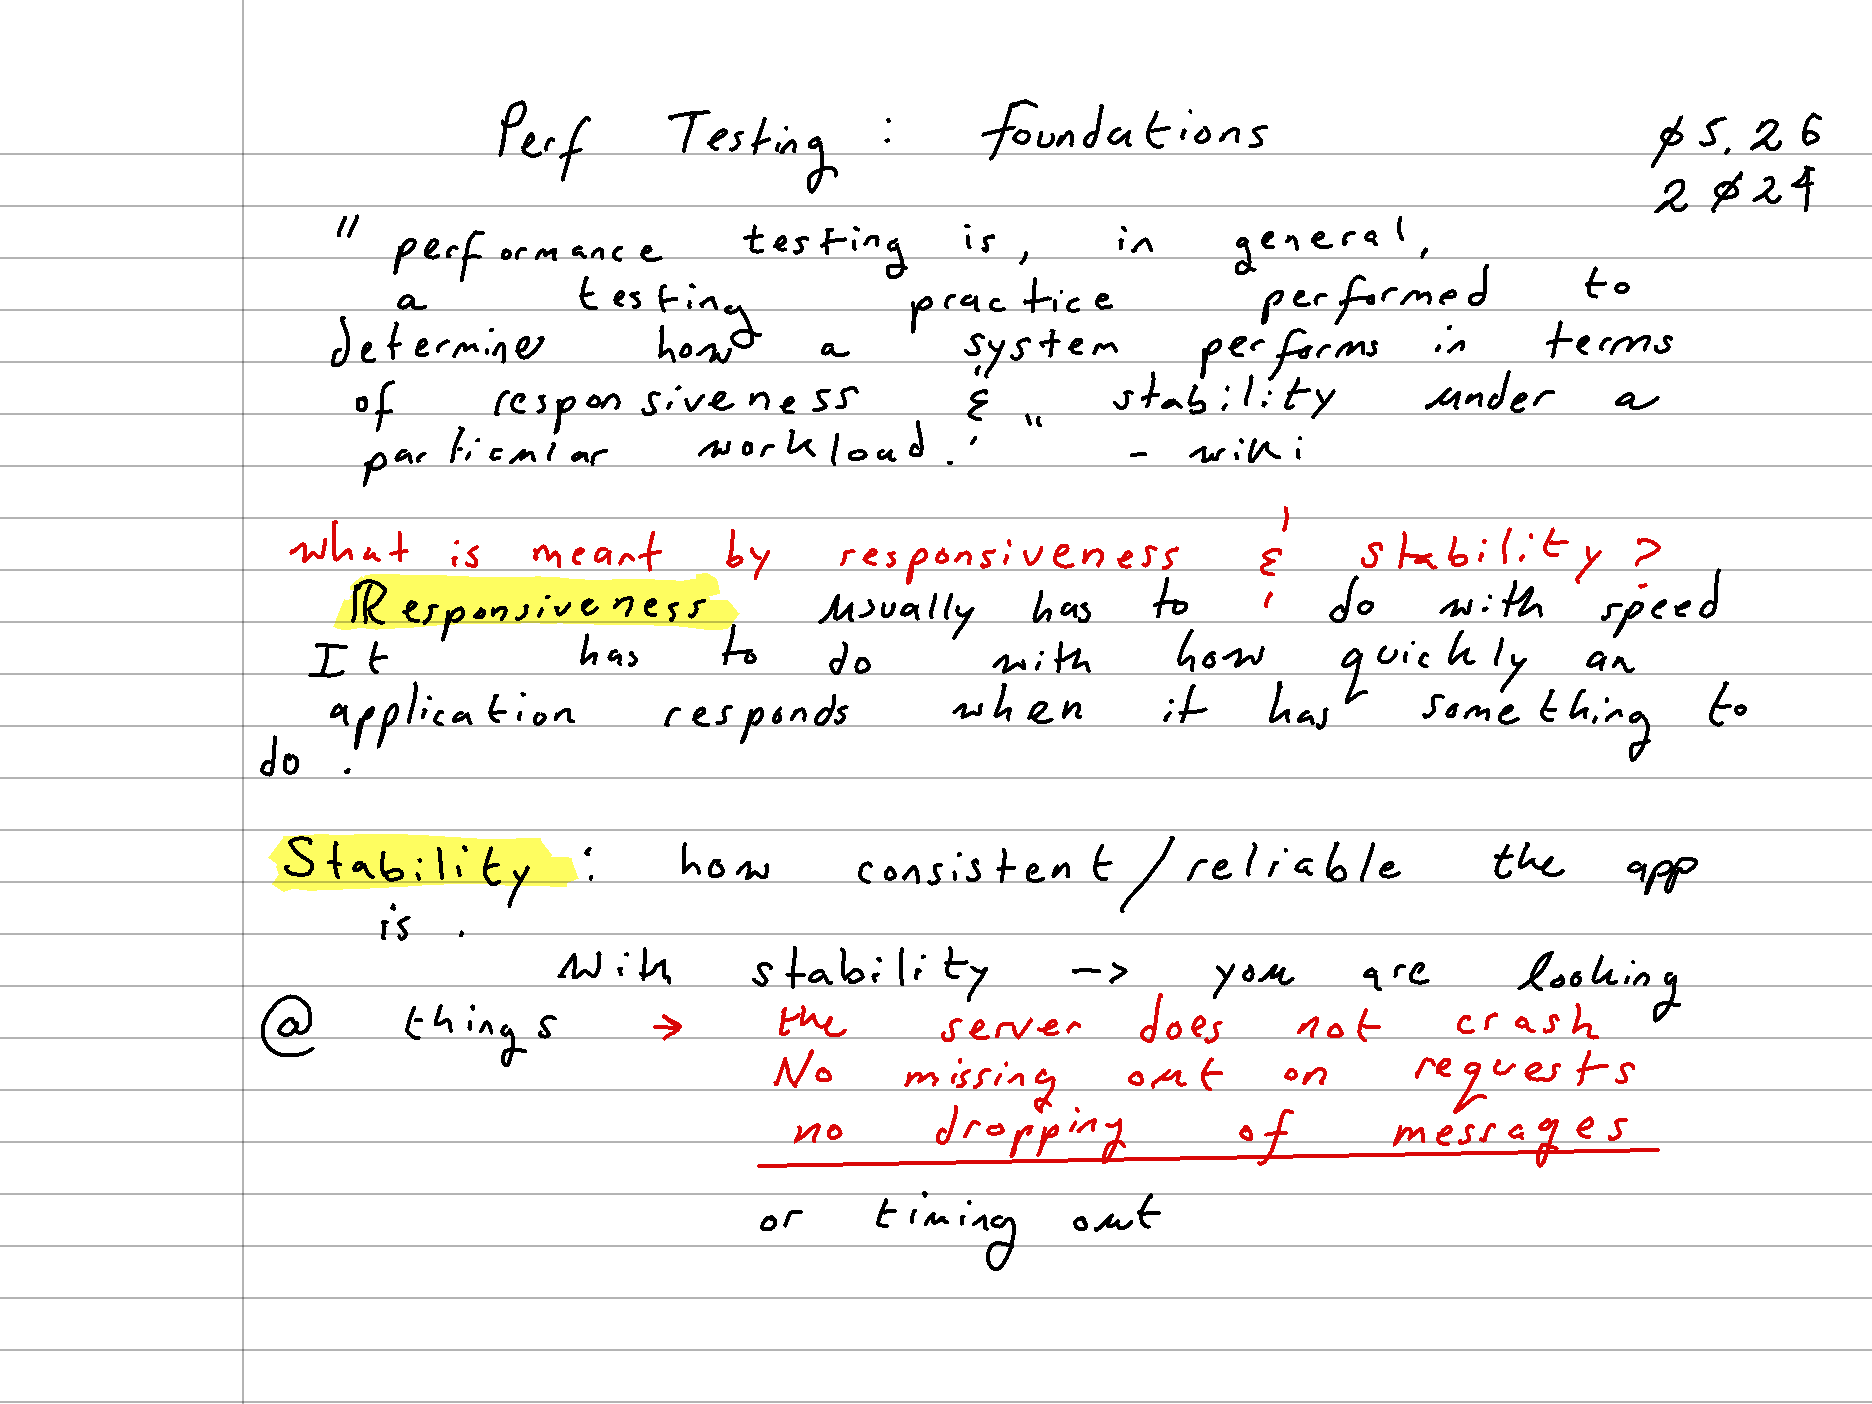 Perf Testing : foundations
ø5.26
2ø24
" performance testing is, in general,
a testing practice performed to
determine how a system performs in terms
of responsiveness & stability under a
particular workload. " - wiki
What is meant by responsiveness & stability?
Responsiveness usually has to do with speed
It has to do with how quickly an
application responds when it has something to
do .
Stability : how consistent/reliable the app
is .
With stability -> you are looking
@ things → the server does not crash
No missing out on requests
no dropping of messages
or timing out